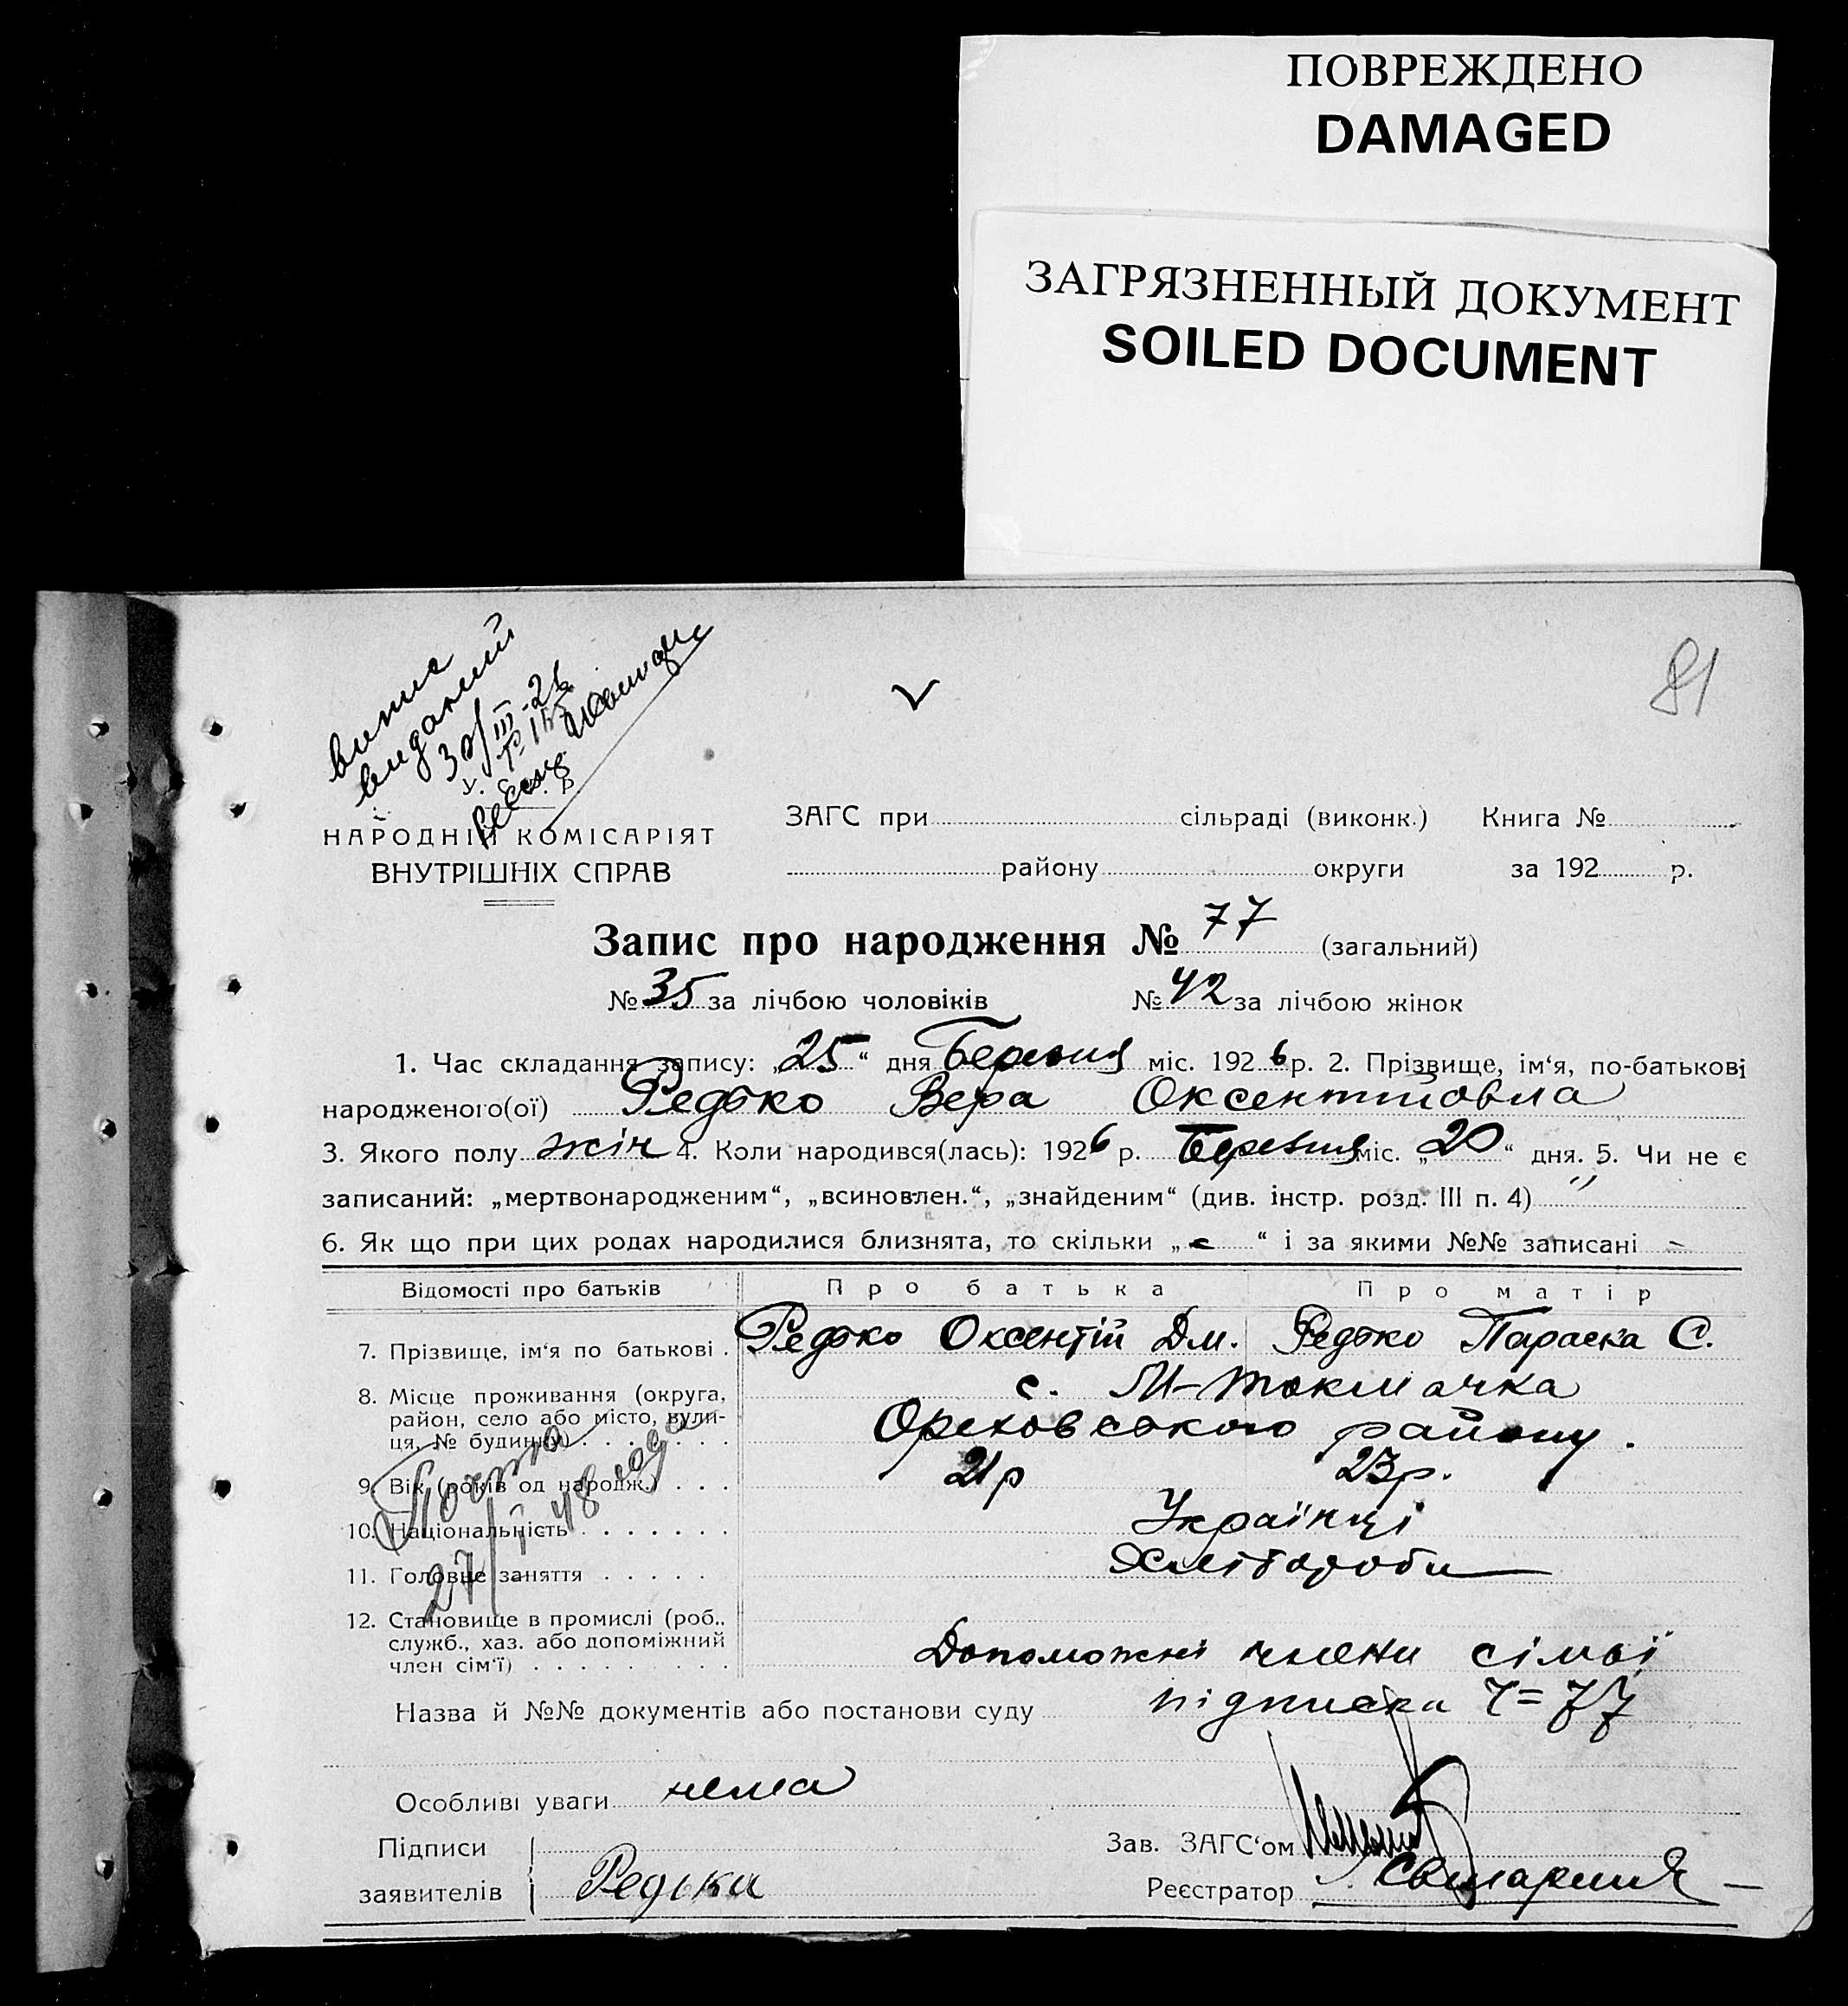 ПОВРЕЖДЕНО
DAMAGED
ЗАГРЯЗНЕННЫЙ ДОКУМЕНТ
SOILED DOCUMENT
91
випис
виданий
30/III-26
НАРОДНІЙ КОМІСАРІЯТ
ВНУТРІШНІХ СПРАВ
ЗАГС при сільраді (виконк.) Книга №
району округи за 192 р.
Запис про народження № 77 (загальний)
№ 35 за лічбою чоловіків № 42 за лічбою жінок
1. Час складання запису: „25“ дня Березня міс. 1926 р. 2. Прізвище, ім‘я, по-батькові
народженого(ої) Редько Вера Оксентіовна
3. Якого полу жін 4. Коли народився(лась): 1926 р. Березня міс. „20“ дня. 5. Чи не є
записаний: „мертвонародженим“, „всиновлен.“, „знайденим“ (див. інстр. розд. III п. 4) "
6. Як що при цих родах народилися близнята, то скільки „-“ і за якими №№ записані -
Відомості про батьків Про батька Про матір
7. Прізвище, ім‘я по батькові . Редько Оксентій Дм. Редько Параска С.
8. Місце проживання (округа, с. М-Токмачка
район, село або місто, вули-
ця, № будинку) Ореховського району.
9. Вік (років од народж.) 21р 23р.
10. Національність Українці
11. Головне заняття Хлібороби
12. Становище в промислі (роб.,
служб., хаз. або допоміжний
член сім‘ї) Допоможні члени сімьї
27/ 48 года
Назва й №№ документів або постанови суду підписка Ч=77
Особливі уваги нема
Підписи
заявителів Редьки
Зав. ЗАГС‘ом
Реєстратор